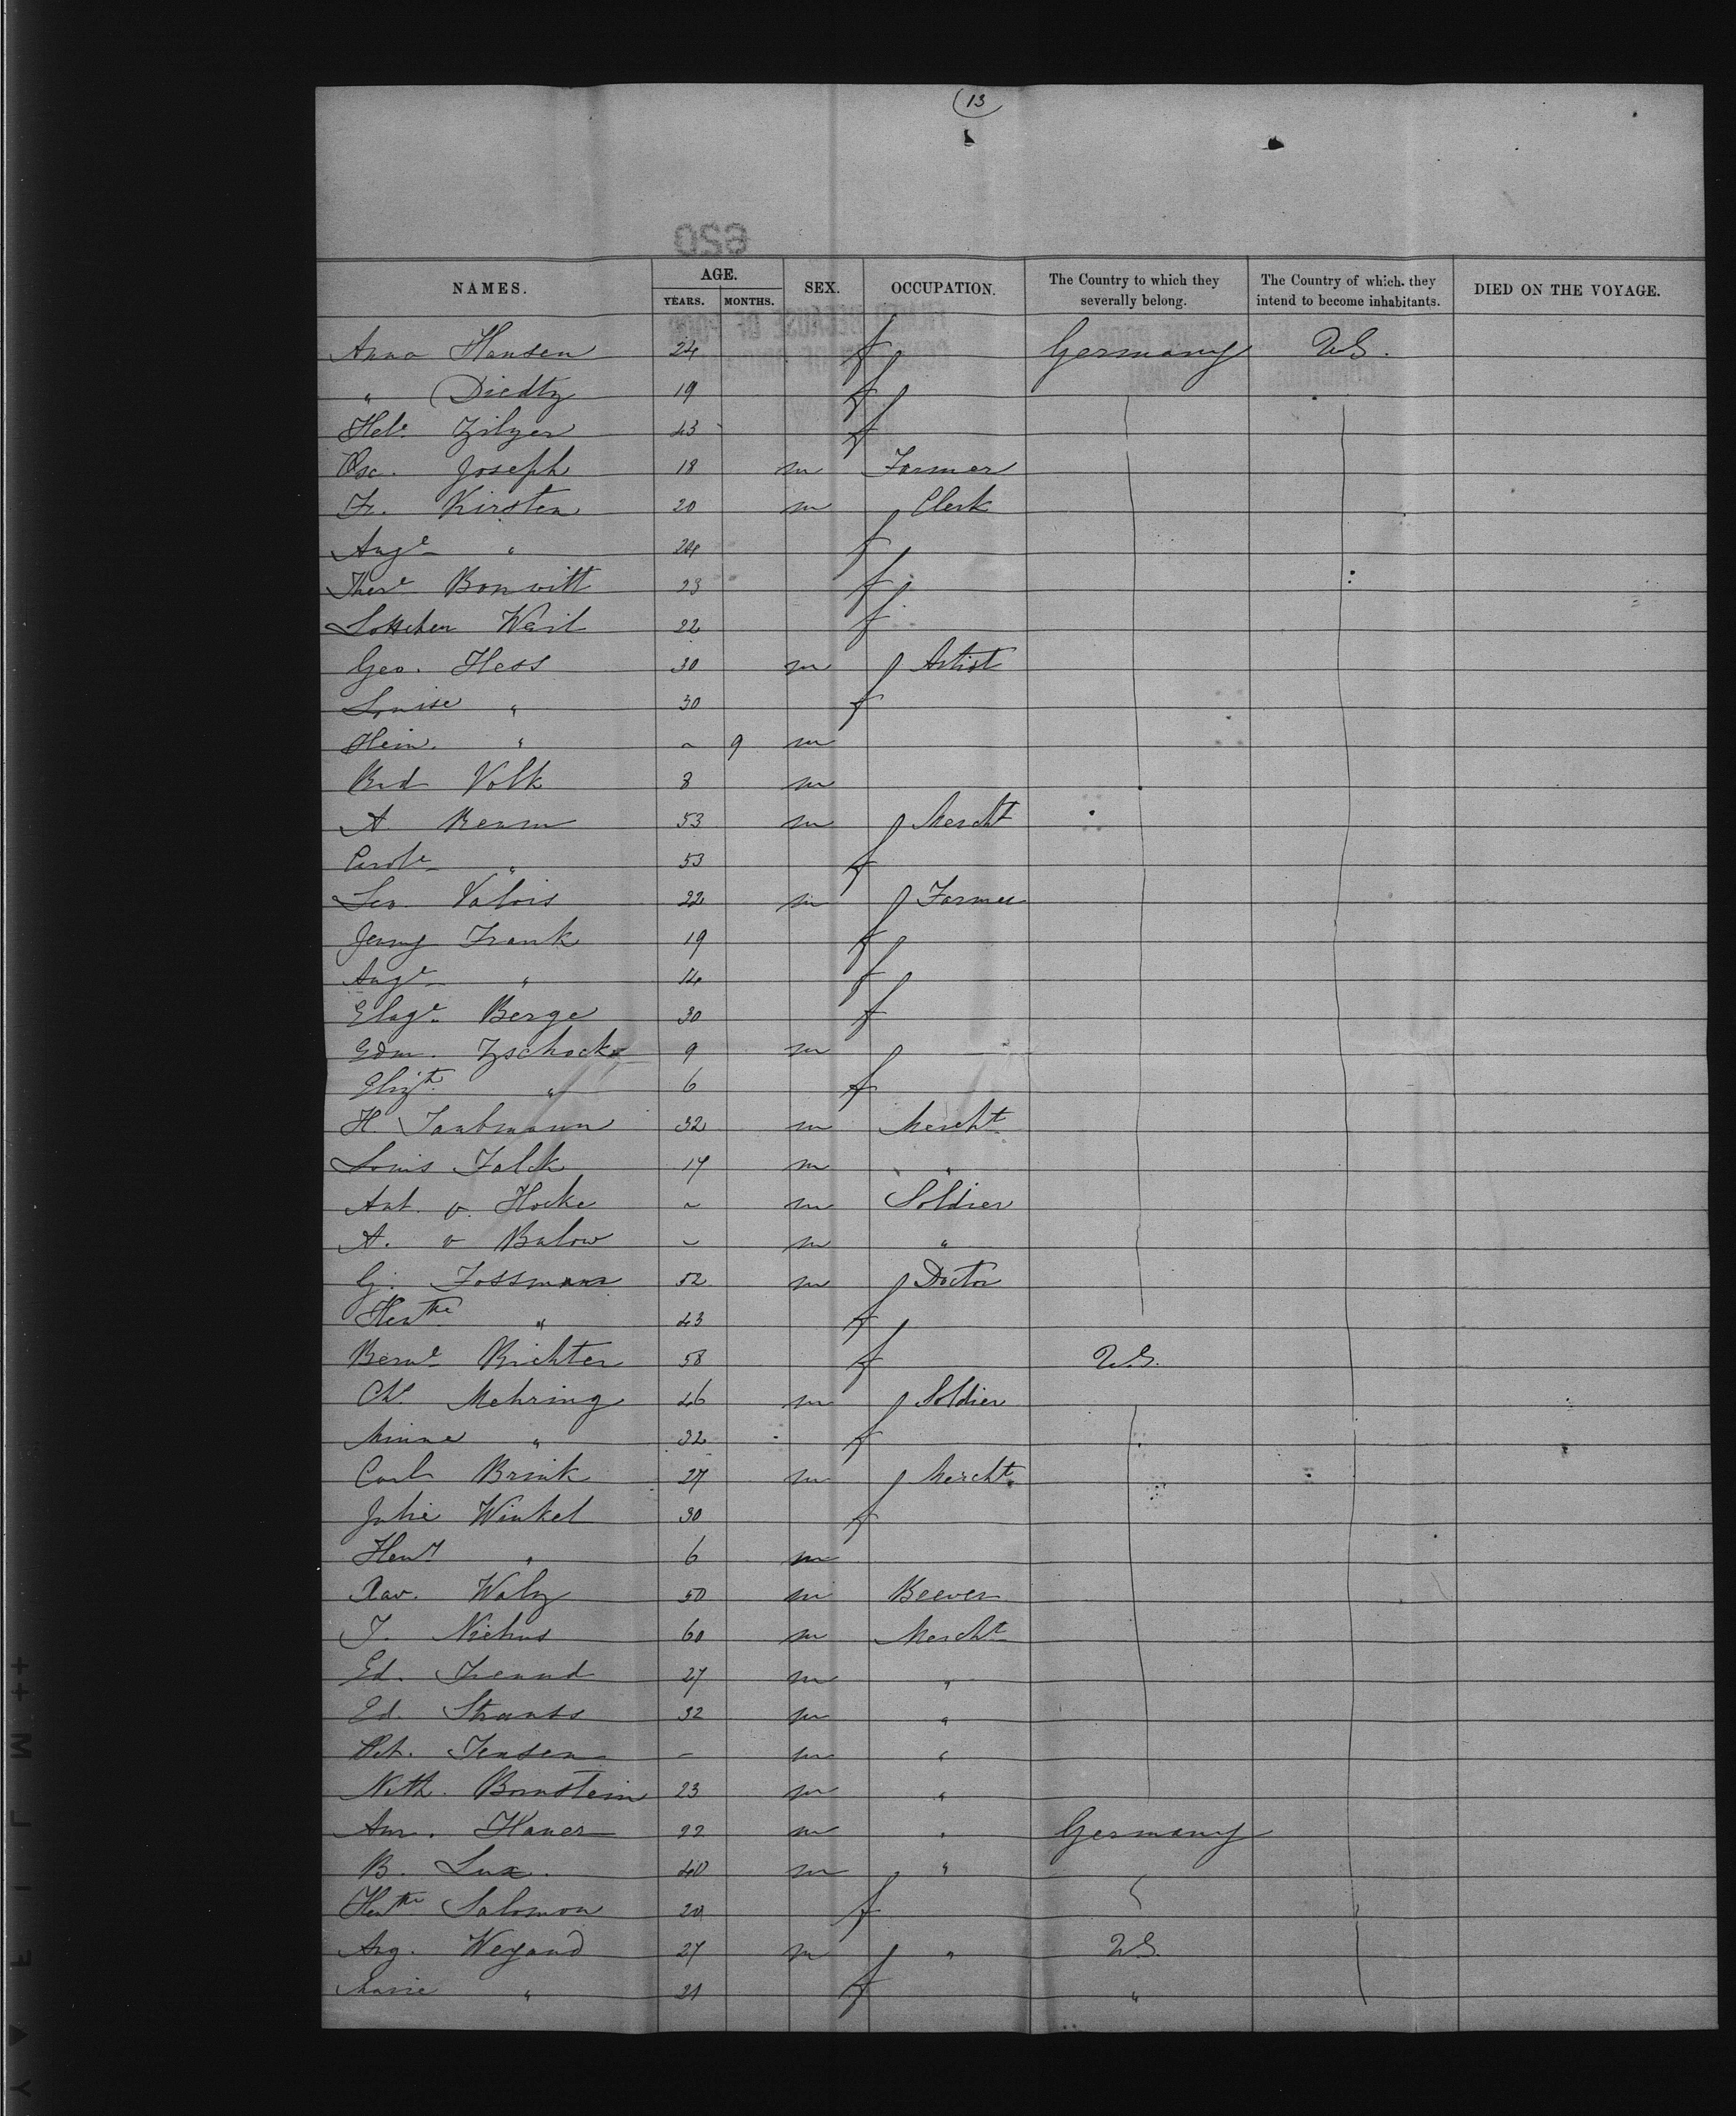 13
620
NAMES. AGE. SEX. OCCUPATION. The Country to which they severally belong. The Country of which they intend to become inhabitants. DIED ON THE VOYAGE.
YEARS. MONTHS.
Anna Hansen 24 f Germany U.S.
" Diedtz 19 f
Hele Zilzer 43 f
Osc. Joseph 18 m Farmer
Fr. Kirsten 20 m Clerk
Auge " 24 f
There Bonvitt 23 f
Lottchen Weil 22 f
Geo. Hess 30 m Artist
Louise " 30 f
Hein. " ~ 9 m
Rud Volk 8 m
A. 53 m Mercht
Carole " 53 f
Leo. Valois 22 m Farmer
Jenny Frank 19 f
Auge " 14 f
Berge 30 f
Edm. Zschocke 9 m
Elizth " 6 f
H. Taubmann 32 m Mercht
Louis Falck 17 m "
Ant. v. Hocke ~ m Soldier
A. v Bulow ~ m "
G. Fossmann 52 m Doctor
Henthe " 43 f
Berne Richter 58 f U.S.
Chs Mehring 46 m Soldier
Minna " 32 f
Carl Brink 27 m Mercht
Julie Winkel 30 f
Heny " 6 m
Xav. Walz 50 m
J. Niehus 60 m Mercht
Ed. Freund 27 m "
Ed. Strauss 32 m "
Pet. Jensen – m "
Nath. Bornstein 23 m "
Am. Hauer 22 m " Germany
B. Lux. 40 m "
Henthe Salomon 20 f
Aug. Weyand 27 m " U.S.
Marie " 21 f "